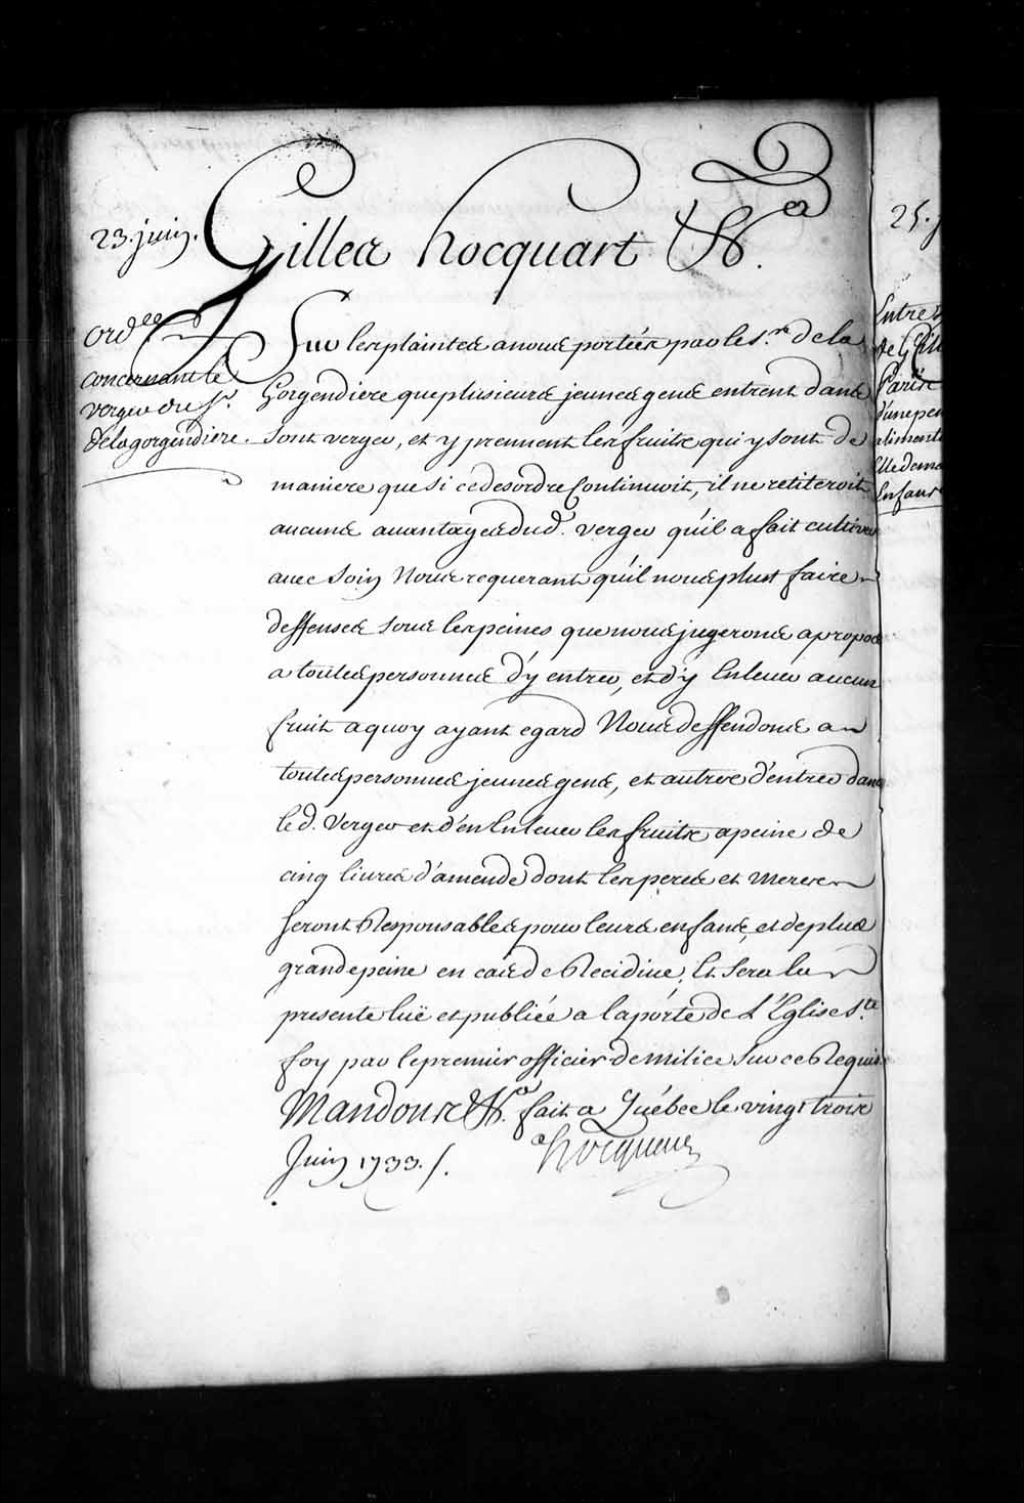 23. juin.
Gilles hocquart &c.ª
ord.ce
concernant le
verger du S.r
de la gorgendiere.
Sur les plaintes a nous portées par le S.r de la
Gorgendiere que plusieurs jeunes gens entrent dans
sont verger, et y prennent les fruits qui y sont de
maniere que si ce desordre Continuoit, il ne retiteroit
aucuns auantages dud. verger qu'il a fait cultiver
auec soin Nous requerant qu'il nous plust faire
deffenses sous les peines que nous jugerons a propos
a toutes personnes d'y entrer, et d'y Enleuer aucun
fruit a quoy ayant egard Nous deffendons a
toutes personnes jeunes gens, et autres d'entrer dans
led. verger et d'en Enleuer les fruits a peine de
cinq liures d'amende dont les peres et meres
seront Responsables pour leurs enfans, et de plus
grande peine en cas de Recidiue, Et sera la
presente luë et publiée a la porte de L'Eglise S.te
foy par le premier officier de milice sur ce Requis
Mandons &c.ª fait a Québec le vingt trois
Juin 1733. /.
hocquart
25. j
Entre
de
Paris
d'une pen
aliment
Elle dema
Enfans